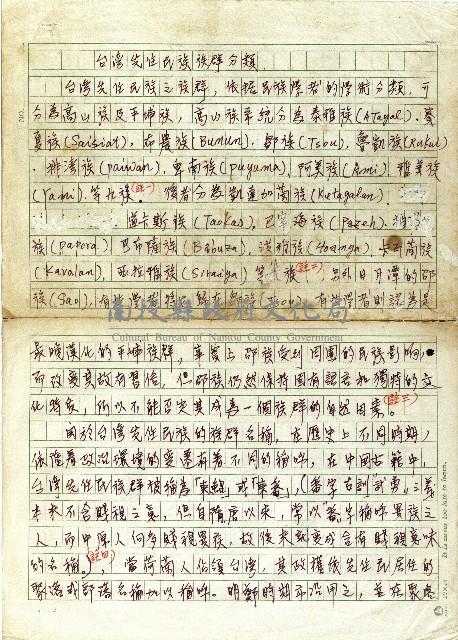 台灣先住民族族群分類
台灣先住民族之族群，依據民族學者的學術分類，可
分為高山族及平埔族，高山族系統分為泰雅族(Atayal)、賽
夏族(Saisiat)、布農族(Bunun)、鄒族(Tsou)、魯凱族(Rukai)
、排灣族(paiwan)、卑南族(puyuma)、阿美族(Ami)、雅美族
(Yami)、等九族。(註一)後者分為凱達加蘭族(Ketagalan)、
道卡斯族(Taokas)、巴宰海族(Pazeh)、
族(Papora)、巴布薩族(Babuza)、洪雅族(Hoanya)、
(Kavalan)、西拉雅族(Siraiya)等 族(註二)。另外日月潭的邵
族(Sao)，有 學者 (Tsou)，有些學者則認為是
南投縣政府文化局
Cultural Bureau of Nantou County Government
最晚漢化的平埔族群，事實上邵族受到周圍的民族影响，
而改變其故有習俗，但邵族仍然保持固有語言和獨特的文
化特質，所以不能否定其成為一個族群的自然因素。(註三)
關於台灣先住民族的族群名稱，在歷史上不同時期，
依隨着政治環境的變遷有着不同的稱呼，在中國古籍中，
台灣先住民族群被稱為「東鯷」或「東番」，(番字古訓「武勇」之義
本來不含賤視之意，但自隋唐以來，常以番字稱呼異族之
人，而中原人何有賤視異族，故後來就變成含有賤視意味
的名稱。(註四)，當荷蘭人佔領台灣，其政權依先住民居住的
聚落或部落名稱加以稱呼。明鄭時期亦沿用之，並在聚處